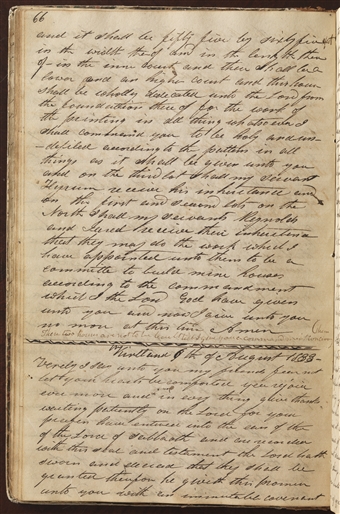 66
and it shall be fifty five by sixty five feet
in the width thereof and in the length there
of in the inner court and there shall be a
lower and an higher court and this house
shall be wholly dedicated unto the Lord from
the foundation there of for the work of
the printing in all things whatsoever I
shall command you to be holy and un
defiled according to the pattern in all
things as it shall be given unto you
and on the third lot shall my servant
Hyrum receive his inheritance and
on the first and second lots on the
North shall my servants Reynolds
and Jared receive their inheritance
that they may do the work which I
have appointed unto them to be a
committe to build mine houses
according to the commandment
which I the Lord God have given
unto you and now I give unto you
no more at this time Amen
Kirtland 6th of August 1833
Verely I say unto you my friends fear not
let your hearts be comforted yea rejoice
ever more and in every thing give thanks
waiting patiently on the Lord for your
prayers have entered into the ears of the
of the Lord of Sabbaoth and are recorded
with this seal and testament the Lord hath
sworn and decreed that they shall be
granted therefore he giveth this promise
unto you with an immutable covenant